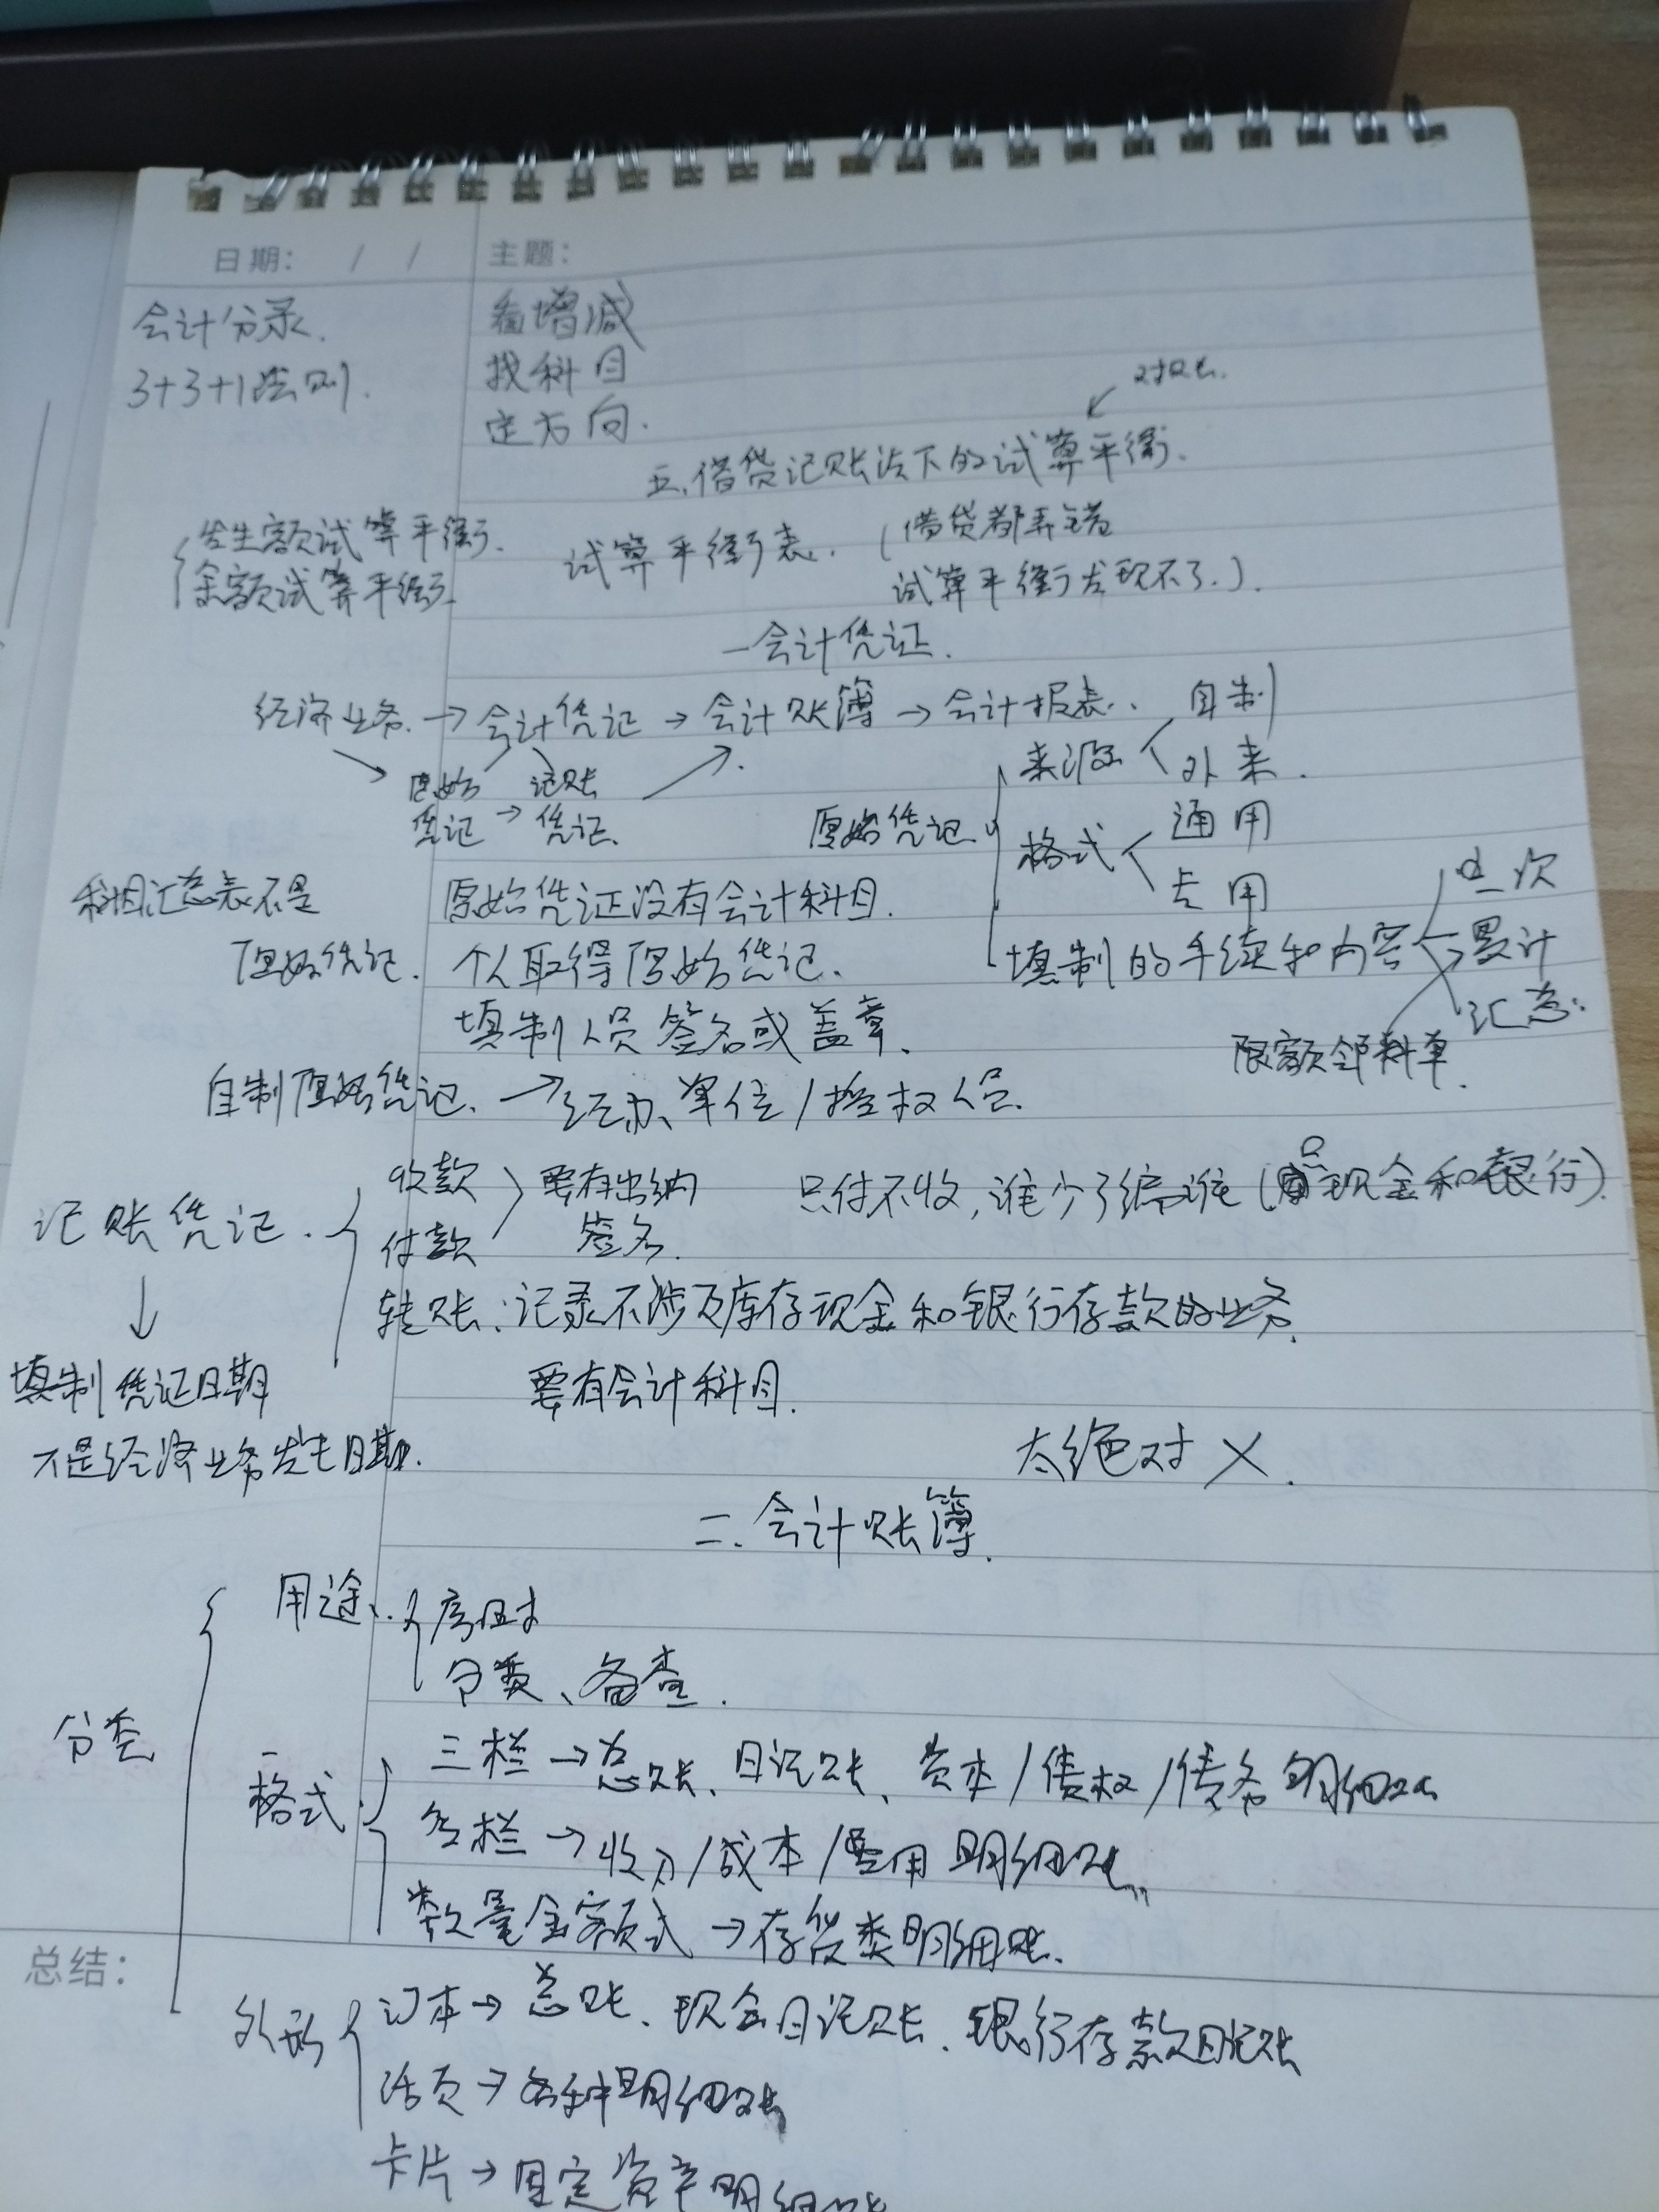 日期: / / 主题:
会计分录. 看增减
3+3+1法则. 找科目
定方向.
对账.
五.借贷记账法下的试算平衡.
发生额试算平衡. 试算平衡表. (借贷都弄错
余额试算平衡 试算平衡发现不了.)
一会计凭证.
经济业务 → 会计凭证 → 会计账簿 → 会计报表. 自制
来源 外来.
原始 记账
凭证 → 凭证. 原始凭证 格式 通用
专用
科目汇总表不是 原始凭证没有会计科目. 一次
原始凭证. 个人取得原始凭证. 填制的手续和内容 累计
填制人员签名或盖章. 汇总.
限额领料单.
自制原始凭证. → 经办、单位/授权人员.
收款 要有出纳 只付不收,谁少了编谁(只现金和银行).
记账凭证. 付款 签名.
↓ 转账:记录不涉及库存现金和银行存款的业务.
填制凭证日期 要有会计科目.
不是经济业务发生日期. 太绝对 ×.
二.会计账簿.
用途. 序时
分类、备查.
分类 三栏 → 总账、日记账、资本/债权/债务明细账
格式. 多栏 → 收入/成本/费用明细账
数量金额式 → 存货类明细账.
总结:
外形 订本 → 总账、现金日记账、银行存款日记账
活页 → 各种明细账
卡片 → 固定资产明细账